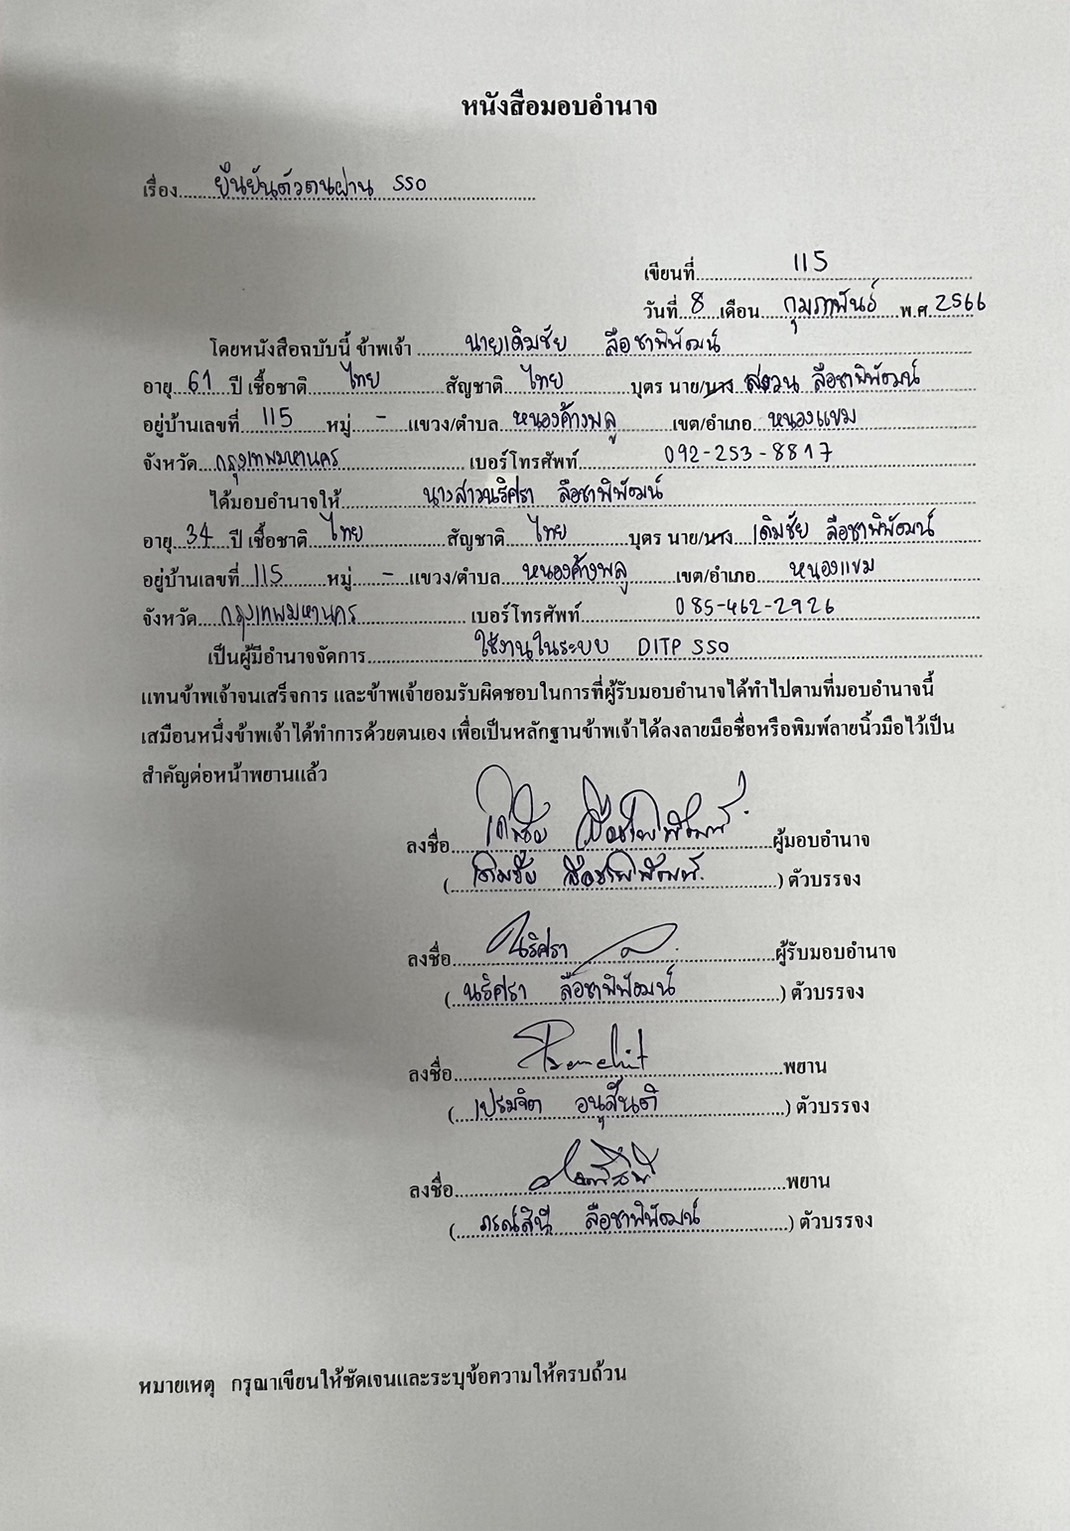 หนังสือมอบอำนาจ
เรื่อง ยืนยันตัวตนผ่าน SSO
เขียนที่ 115
วันที่ 8 เดือน กุมภาพันธ์ พ.ศ. 2566
โดยหนังสือฉบับนี้ ข้าพเจ้า นายเดิมชัย ลือชาพิพัฒน์
อายุ 61 ปี เชื้อชาติ ไทย สัญชาติ ไทย บุตร นาย/นาง สงวน ลือชาพิพัฒน์
อยู่บ้านเลขที่ 115 หมู่ - แขวง/ตำบล หนองค้างพลู เขต/อำเภอ หนองแขม
จังหวัด กรุงเทพมหานคร เบอร์โทรศัพท์ 092-253-8817
ได้มอบอำนาจให้ นางสาวนริศรา ลือชาพิพัฒน์
อายุ 34 ปี เชื้อชาติ ไทย สัญชาติ ไทย บุตร นาย/นาง เดิมชัย ลือชาพิพัฒน์
อยู่บ้านเลขที่ 115 หมู่ - แขวง/ตำบล หนองค้างพลู เขต/อำเภอ หนองแขม
จังหวัด กรุงเทพมหานคร เบอร์โทรศัพท์ 085-462-2926
เป็นผู้มีอำนาจจัดการ ใช้งานในระบบ DITP SSO
แทนข้าพเจ้าจนเสร็จการ และข้าพเจ้ายอมรับผิดชอบในการที่ผู้รับมอบอำนาจได้ทำไปตามที่มอบอำนาจนี้
เสมือนหนึ่งข้าพเจ้าได้ทำการด้วยตนเอง เพื่อเป็นหลักฐานข้าพเจ้าได้ลงลายมือชื่อหรือพิมพ์ลายนิ้วมือไว้เป็น
สำคัญต่อหน้าพยานแล้ว
ลงชื่อ เดิมชัย ลือชาพิพัฒน์ ผู้มอบอำนาจ
( เดิมชัย ลือชาพิพัฒน์ ) ตัวบรรจง
ลงชื่อ นริศรา ล. ผู้รับมอบอำนาจ
( นริศรา ลือชาพิพัฒน์ ) ตัวบรรจง
ลงชื่อ พยาน
( เปรมจิต อนุสันติ ) ตัวบรรจง
ลงชื่อ พยาน
( ภรณ์สินี ลือชาพิพัฒน์ ) ตัวบรรจง
หมายเหตุ กรุณาเขียนให้ชัดเจนและระบุข้อความให้ครบถ้วน